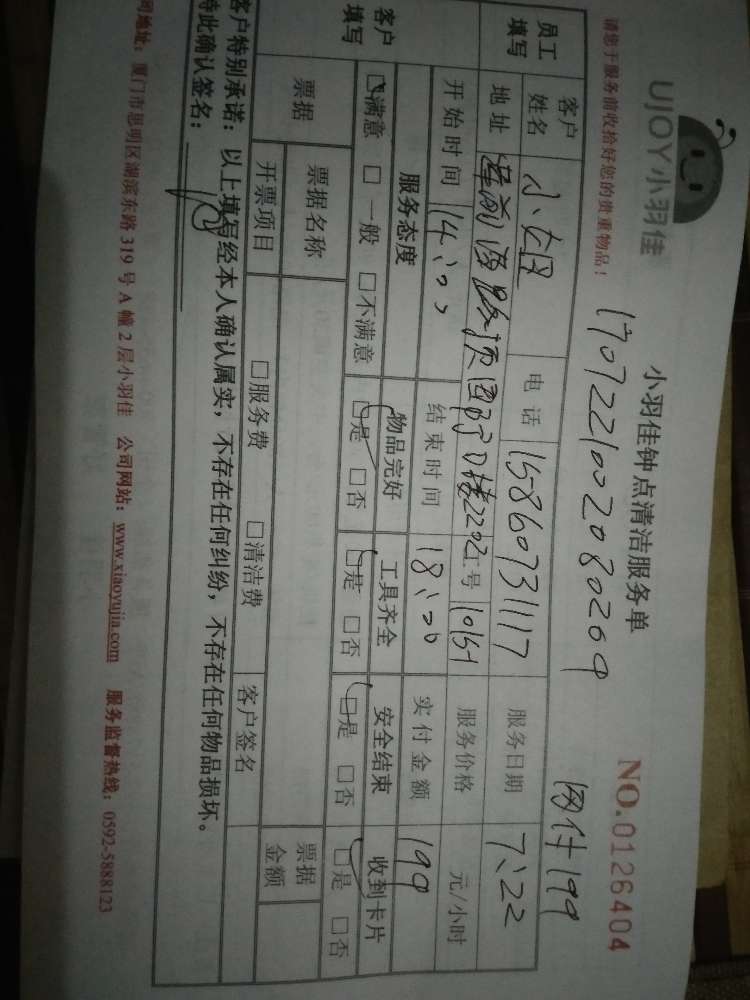 UJOY小羽佳
小羽佳钟点清洁服务单
NO.0126404
请您于服务前收拾好您的贵重物品！
1707221002080269
网付199
员工填写
客户姓名 小姐 电话 15860731117 服务日期 7、22
地址 2202 工号 10151 服务价格 元/小时
开始时间 14：00 结束时间 18：00 实付金额 199
客户填写
服务态度 物品完好 工具齐全 安全结束 收到卡片
☑满意 □一般 □不满意 ☑是 □否 ☑是 □否 ☑是 □否 ☑是 □否
票据 票据名称 票据金额
开票项目 □服务费 □清洁费 客户签名
客户特别承诺：以上填写经本人确认属实，不存在任何纠纷，不存在任何物品损坏。
特此确认签名：
司地址：厦门市思明区湖滨东路319号A幢2层小羽佳 公司网站：www.xiaoyujia.com 服务监督热线：0592-5888123